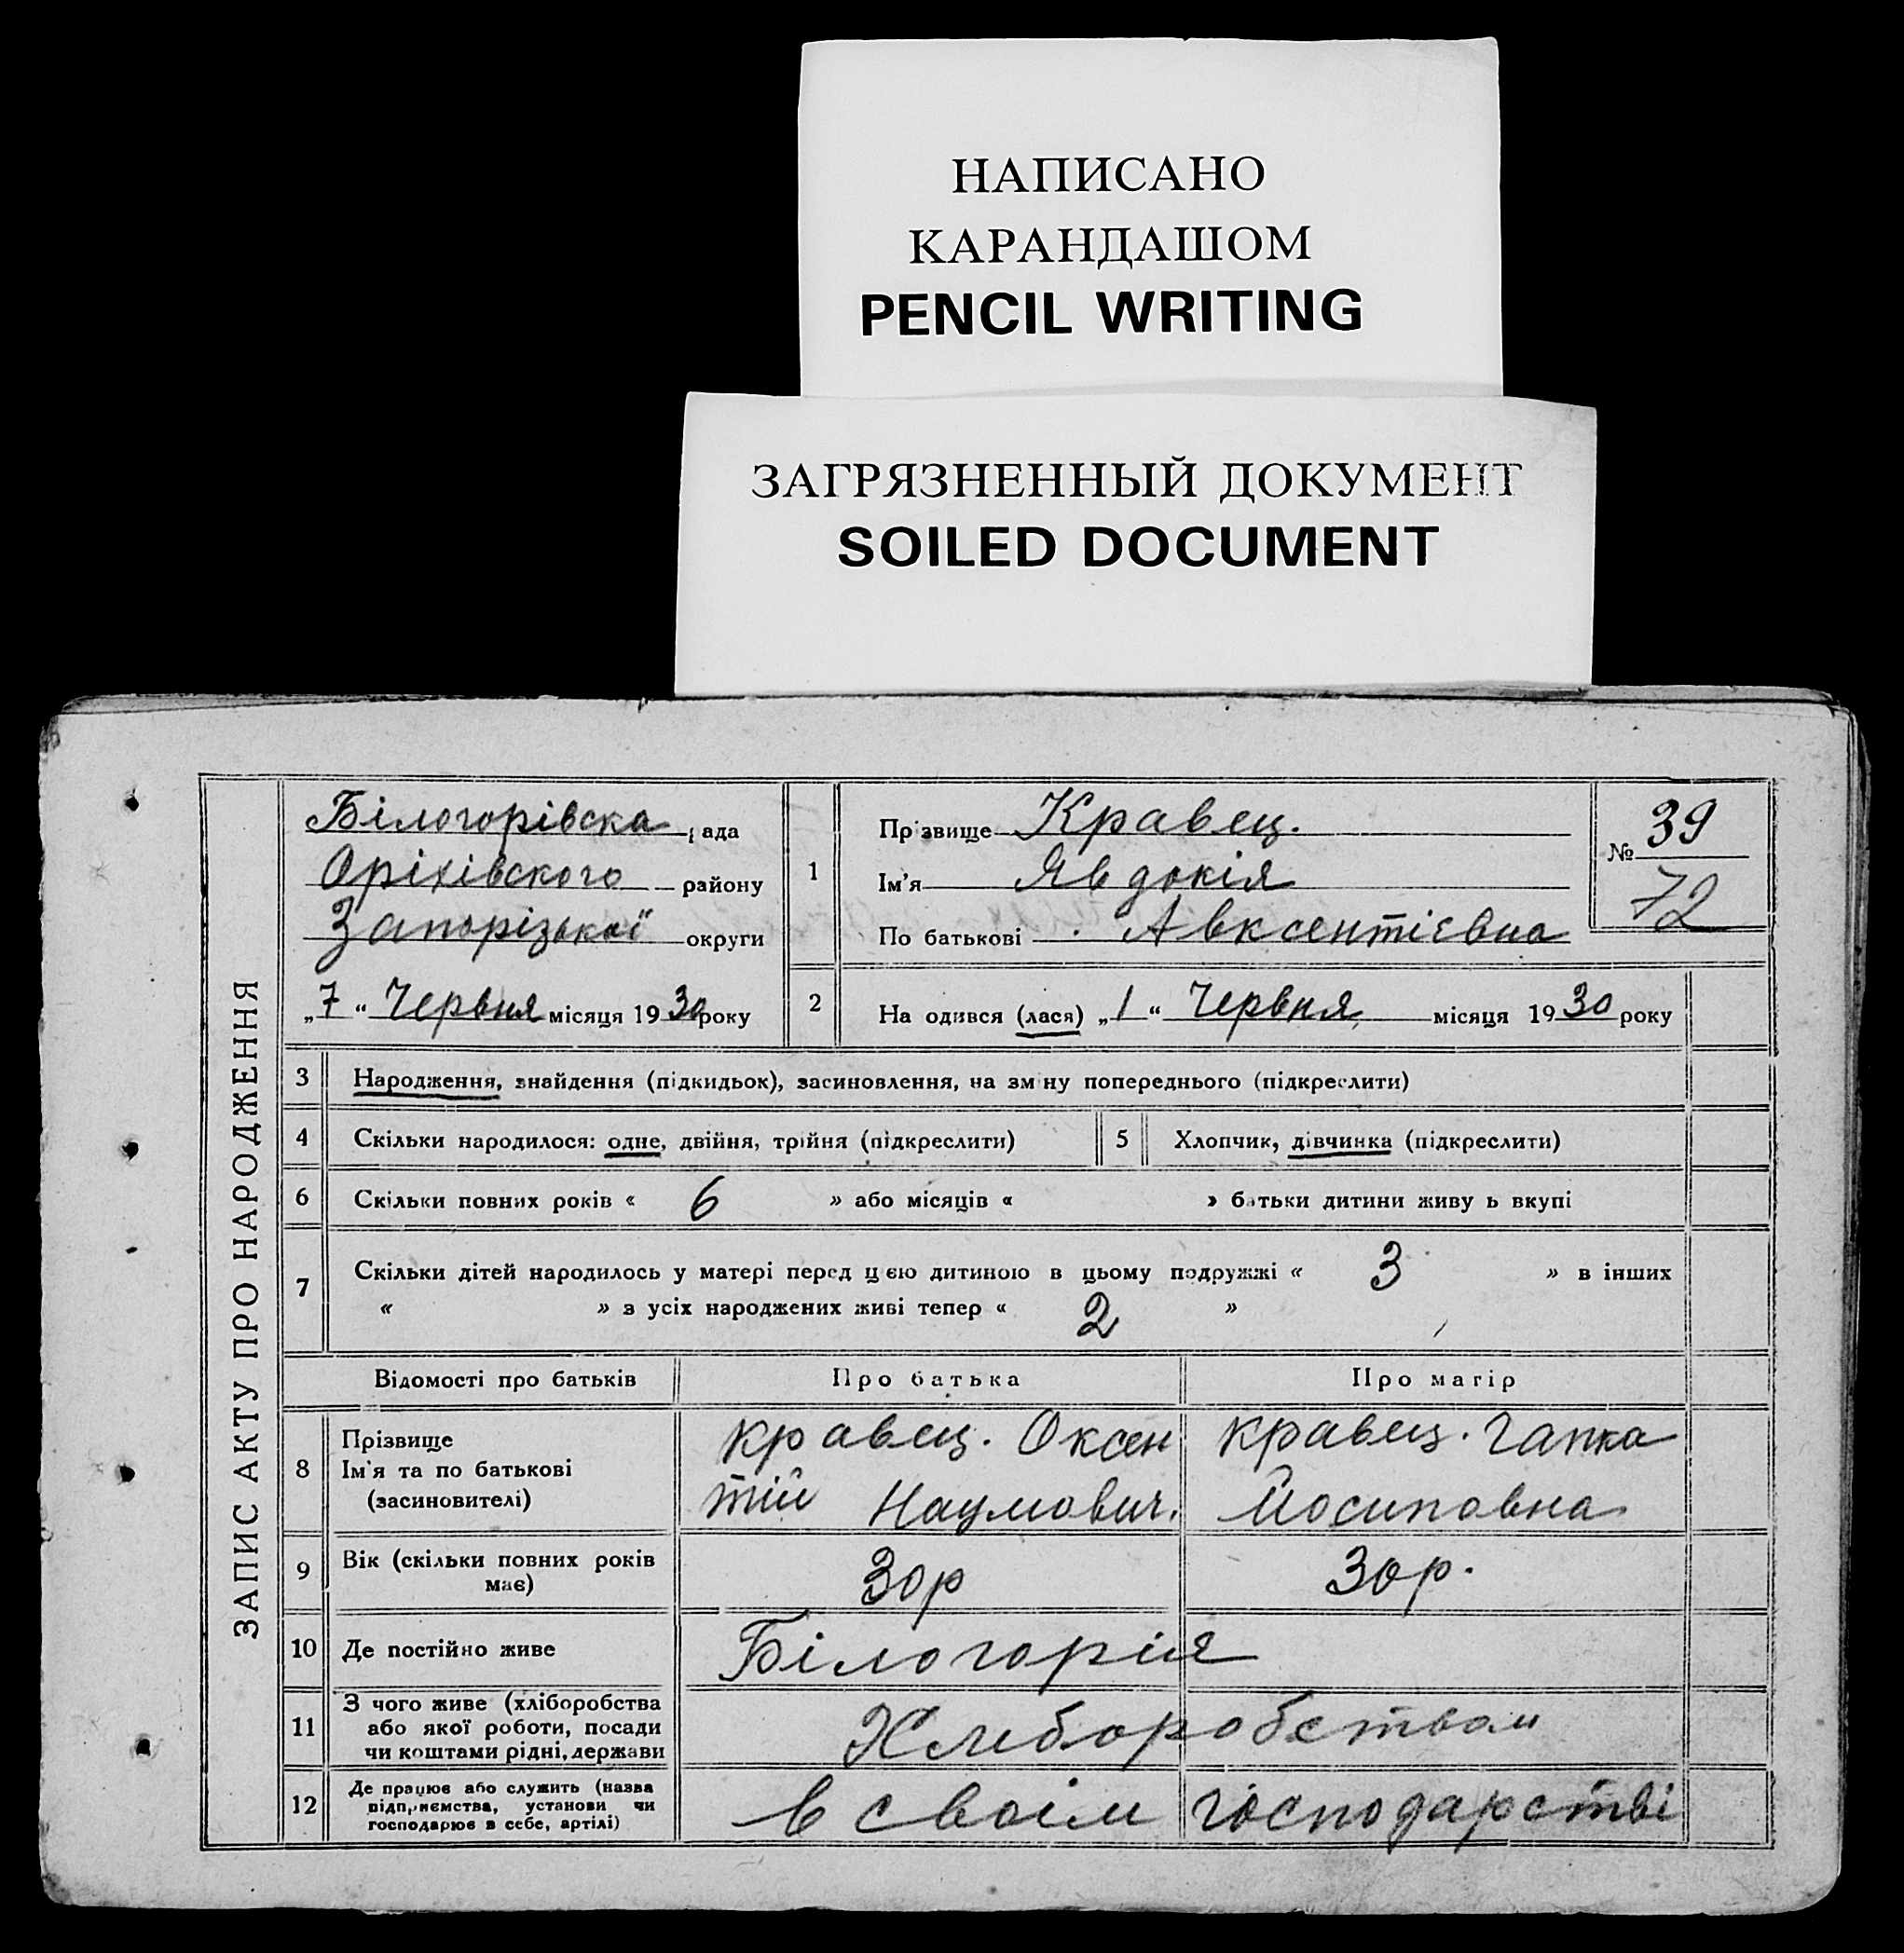 НАПИСАНО
КАРАНДАШОМ
PENCIL WRITING
ЗАГРЯЗНЕННЫЙ ДОКУМЕНТ
SOILED DOCUMENT
ЗАПИС АКТУ ПРО НАРОДЖЕННЯ
Білогорівска рада
Оріхівского району
Запорізької округи
„7“ Червня місяця 1930 року
1
Прізвище Кравец.
Ім'я Явдокія
По батькові Авксентієвна
№ 39
72
2 На одився (лася) „1“ Червня місяця 1930 року
3 Народження, знайдення (підкидьок), засиновлення, на зміну попереднього (підкреслити)
4 Скільки народилося: одне, двійня, трійня (підкреслити) 5 Хлопчик, дівчинка (підкреслити)
6 Скільки повних років « 6 » або місяців « » батьки дитини живу ь вкупі
7 Скільки дітей народилось у матері перед цією дитиною в цьому подружжі « 3 » в інших
« » з усіх народжених живі тепер « 2 »
Відомості про батьків Про батька Про матір
8 Прізвище
Ім'я та по батькові
(засиновителі)
Кравец. Оксен
тій Наумович.
Кравец. Гапка
Йосиповна
9 Вік (скільки повних років
має)
30р 30р.
10 Де постійно живе Білогорія
11 З чого живе (хліборобства
або якої роботи, посади
чи коштами рідні, держави
Хлиборобством
12 Де працює або служить (назва
підприємства, установи чи
господарює в себе, артілі)
в своім господарстві